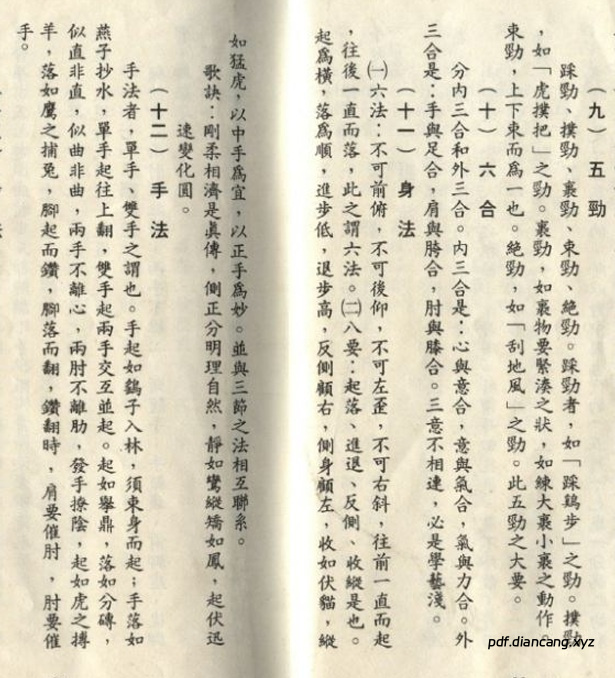 （九）五勁
踩勁、撲勁、裹勁、束勁、絕勁。踩勁者，如「踩鷄步」之勁。撲勁
，如「虎撲把」之勁。裹勁，如裹物要緊湊之狀，如練大裹小裹之動作。
束勁，上下束而爲一也。絕勁，如「刮地風」之勁。此五勁之大要。
（十）六合
分内三合和外三合。内三合是：心與意合，意與氣合，氣與力合。外
三合是：手與足合，肩與胯合，肘與膝合。三意不相連，必是學藝淺。
（十一）身法
㈠六法：不可前俯，不可後仰，不可左歪，不可右斜，往前一直而起
，往後一直而落，此之謂六法。㈡八要：起落、進退、反側、收縱是也。
起爲橫，落爲順，進步低，退步高，反側顧右，側身顧左，收如伏貓，縱
如猛虎，以中手爲宜，以正手爲妙。並與三節之法相互聯系。
歌訣：剛柔相濟是眞傳，側正分明理自然，靜如鸞縱矯如鳳，起伏迅
速變化圓。
（十二）手法
手法者，單手、雙手之謂也。手起如鷂子入林，須束身而起；手落如
燕子抄水，單手起往上翻，雙手起兩手交互並起。起如舉鼎，落如分磚，
似直非直，似曲非曲，兩手不離心，兩肘不離肋，發手撩陰，起如虎之搏
羊，落如鷹之捕兔，腳起而鑽，腳落而翻，鑽翻時，肩要催肘，肘要催
手。
pdf.diancang.xyz